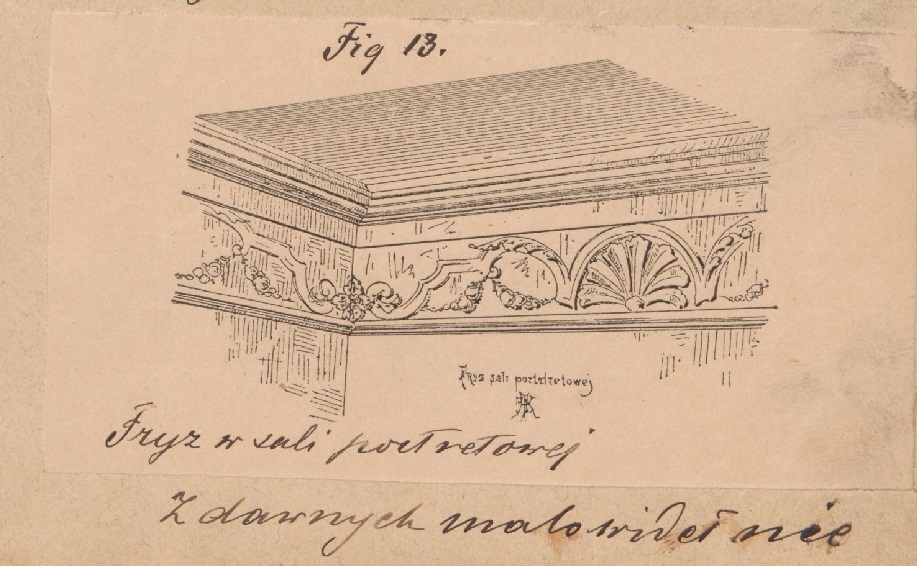 Fig 13.
Fryz sali portretowej
Fryz w sali portretowej
Z dawnych malowideł nie